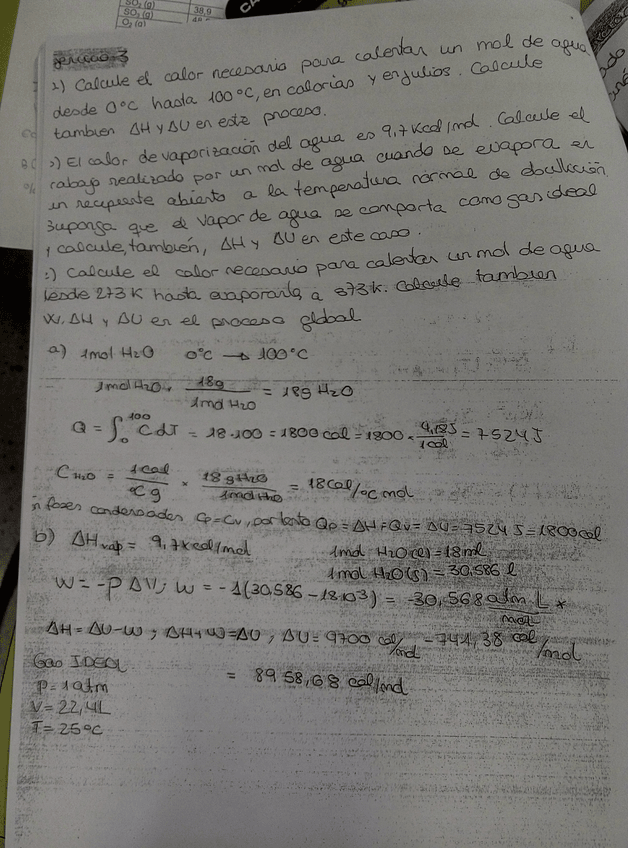 SO₂ (g)
SO₃ (g) 38,9
O₂ (g)
CA
Ejercicio 3
a) Calcule el calor necesario para calentar un mol de agua
desde 0°C hasta 100°C, en calorías y en julios. Calcule
tambien ΔH y ΔU en este proceso.
b) El calor de vaporización del agua es 9,7 Kcal/mol. Calcule el
rabajo realizado por un mol de agua cuando se evapora en
un recipiente abierto a la temperatura normal de ebullición
Suponga que el vapor de agua se comporta como gas ideal
y calcule, también, ΔH y ΔU en este caso.
c) Calcule el calor necesario para calentar un mol de agua
desde 273K hasta evaporarla, a 373K. Calcule tambien
W, ΔH y ΔU en el proceso global
a) 1mol H₂O 0°C → 100°C
1mol H₂O · 18g / 1mol H₂O = 18g H₂O
Q = ∫₀¹⁰⁰ C dT = 18·100 = 1800 cal = 1800 · 4,18J / 1cal = 7524 J
C H₂O = 1cal / °C g × 18g H₂O / 1mol H₂O = 18cal/°C mol
n fases condensadas Cp=Cv, por tanto Qp = ΔH = Qv = ΔU = 7524 J = 1800cal
b) ΔHvap = 9,7 Kcal/mol 1mol H₂O(l) = 18ml
1mol H₂O(g) = 30,586 l
W = -P ΔV; W = -1(30,586 - 18·10⁻³) = -30,568 atm·L / mol *
ΔH = ΔU-W ; ΔH+W=ΔU , ΔU = 9700 cal/mol - 741,38 cal/mol
Gas IDEAL = 8958,68 cal/mol
P = 1atm
V = 22,4L
T = 25°C